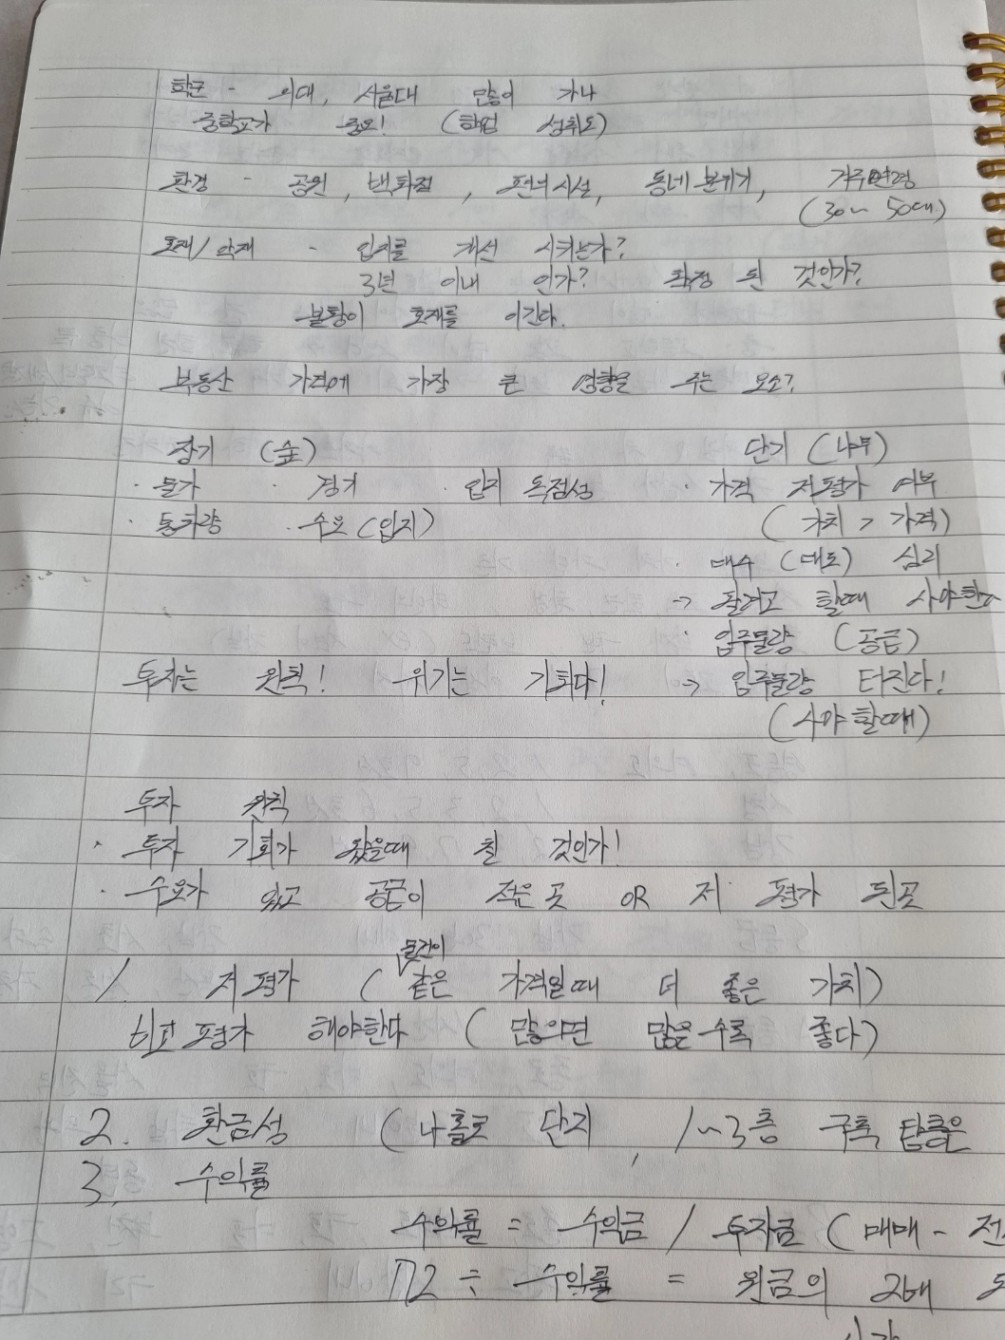 학군 - 의대, 서울대 많이 가나
중학교가 중요! (학업 성취도)
환경 - 공원, 백화점, 편의시설, 동네분위기, 거주연령
(30~50대)
호재/악재 - 입지를 개선 시키는가?
3년 이내 인가? 확정 된 것인가?
불황이 호재를 이긴다.
부동산 가격에 가장 큰 영향을 주는 요소?
장기 (숲) 단기 (나무)
· 물가 · 경기 · 입지 독점성 · 가격 저평가 여부
· 통화량 · 수요(입지) (가치 > 가격)
· 매수 (매도) 심리
→ 팔려고 할때 사야한다
· 입주물량 (공급)
투자는 원칙! 위기는 기회다! → 입주물량 터진다!
(사야 할때)
투자 원칙
· 투자 기회가 왔을때 할 것인가!
· 수요가 있고 공급이 적은 곳 OR 저평가 된곳
물건이
1. 저평가 (같은 가격일때 더 좋은 가치)
비교평가 해야한다 (많으면 많을수록 좋다)
2. 환금성 (나홀로 단지, 1~3층 구축 탑층은
3. 수익률
수익률 = 수익금 / 투자금 (매매 - 전
72 ÷ 수익률 = 원금의 2배